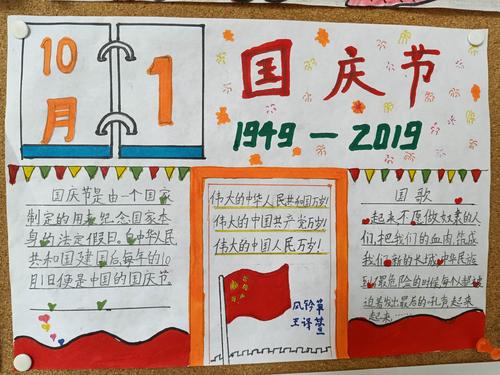 10
月
1
国庆节
1949-2019
国庆节是由一个国家
制定的用来纪念国家本
身的法定假日。自中华人民
共和国建国后每年的10
月1日便是中国的国庆节。
伟大的中华人民共和国万岁!
伟大的中国共产党万岁!
伟大的中国人民万岁!
王译
国歌
起来不愿做奴隶的人
们,把我们的血肉,筑成
我们新的长城中华民族
到了最危险的时候每个起被
迫着发出最后的孔有起来
起来……